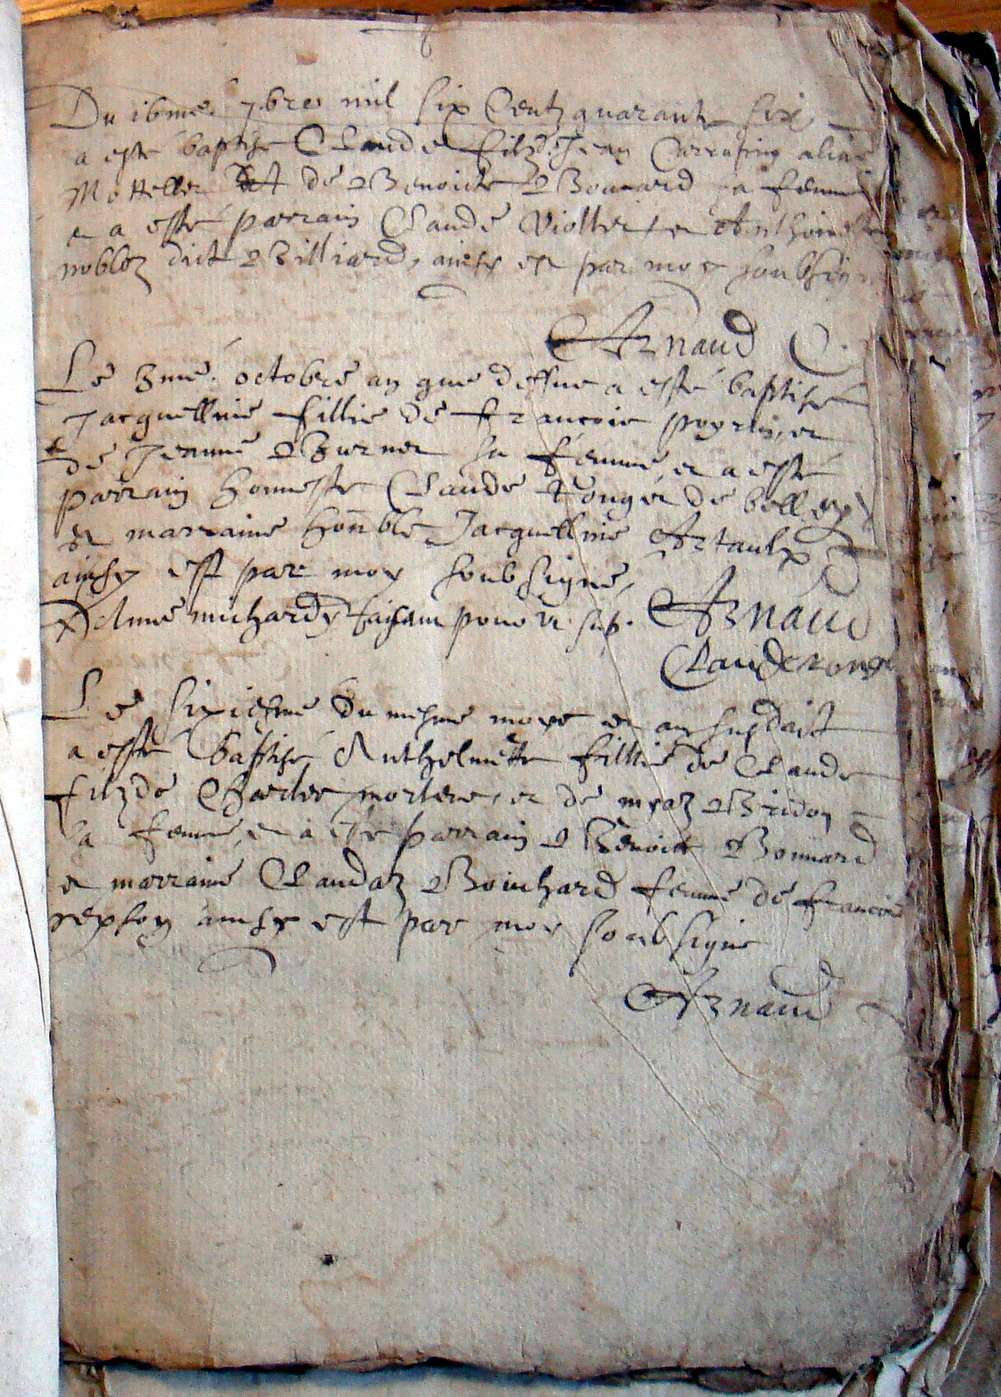 Du 16me 7bre mil six Centz quarante six
a esté baptisé Claude filz de Jean Carrasin alias
Mottellet Et de Benoiste Bonnard sa femme
et a esté parrain Claude Viollet et Anthoinette
noblez dict Billiard, ainsy est par moy soubsig
Arnaud C.
Le 3me. octobre an que dessus a esté baptisé
Jacquelline fillie de francois poyrier
et de Jeanne Burner sa femme et a esté
parrain honneste Claude Rouget de belley
et marraine honble Jacquelline Artaulx
ainsy est par moy soubsigné,
Arnaud
Claude Rouge
Le sixiesme du mesme moys et an susdict
a esté baptisé Anthelmette fillie de Claude
filz de Charles morlere, et de myaz Bridon
sa femme, et a esté parrain Benoit Bonnard
et marraine Claudaz Bouchard femme de francois
rephoy ainsy est par moy soubsigné
Arnaud